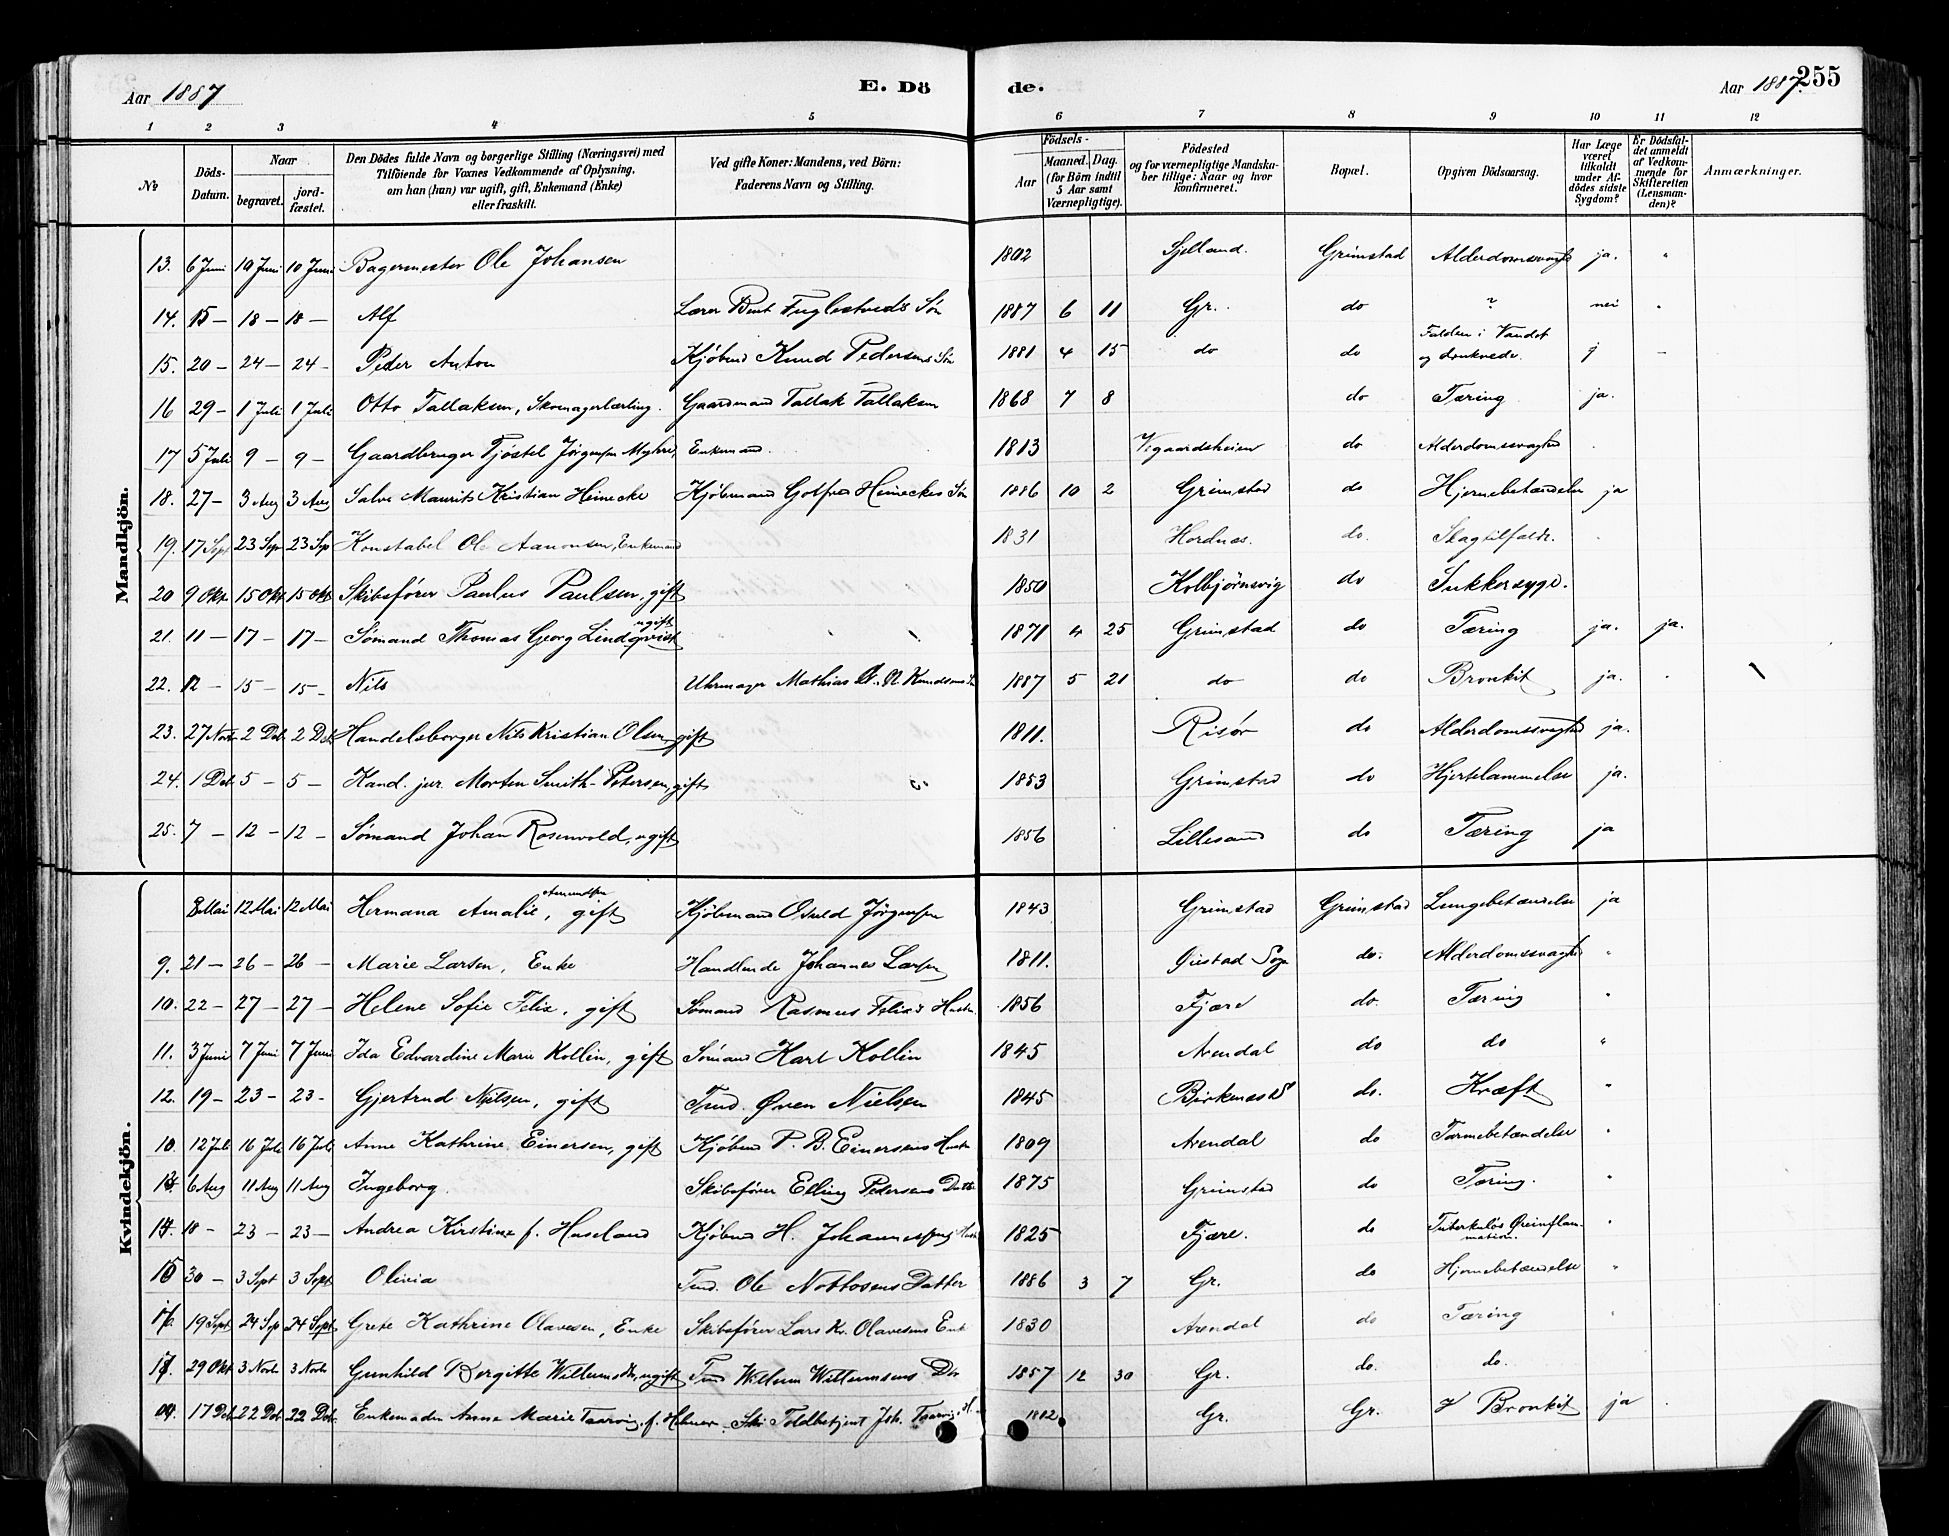 Aar 1887 E. Dö de. Aar 1887. 255
1 2 3 4 5 6 7 8 9 10 11 12
No Döds-Datum. Naar begravet. jord-fæstet. Den Dödes fulde Navn og borgerlige Stilling (Næringsvei) med Tilföiende för Voxnes Vedkommende af Oplysning, om han (hun) var ugift, gift, Enkemand (Enke) eller fraskilt. Ved gifte Koner: Mandens, ved Börn: Faderens Navn og Stilling. Födsels- Aar Maaned. Dag. (for Börn indtil 5 Aar samt Værnepligtige). Födested og for værnepligtige Mandska-ber tillige: Naar og hvor konfirmeret. Bopæl. Opgiven Dödsaarsag. Har Læge været tilkaldt under Af-dödes sidste Sygdom? Er Dödsfal-det anmeldt af Vedkom-mende for Skifteretten (Lensman-den)? Anmærkninger.
Mandkjön.
13. 6 Juni 10 Juni 10 Juni Bagermester Ole Johansen 1802 Sjelland. Grimstad Alderdomssvagh ja. "
14. 15 – 18 – 18 – Alf Lærer Bent Fuglestveds Søn 1887 6 11 Gr. do ? nei "
15. 20 – 24 – 24 – Peder Anton Kjøbmd Knud Pedersens Søn 1881 4 15 do do Falden i Vandet og druknede. –
16 29 – 1 Juli 1 Juli Otto Tallaksen, Skomagerlærling. Gaardmand Tallak Tallaksen 1868 7 8 do Tæring ja.
17 5 Juli 9 – 9 – Gaardbruger Tjøstel Jørgensen Myhre, Enkemand. 1813 Vegaardsheien do Alderdomssvaghed
18. 27 – 3 Aug 3 Aug Salve Maurits Kristian Heinecke Kjøbmand Gotfred Heineckes Søn 1886 10 2 Grimstad do Hjernebetændelse ja
19. 17 Sept 23 Sep 23 Sep Konstabel Ole Aanonsen, Enkemand 1831 Hordnæs. do. Slagtilfælde.
20 9 Okt 15 Okt 15 Okt Skibsfører Paulus Paulsen, gift 1850 Kolbjørnsvig do Sukkersyge.
21. 11 – 17 – 17 – Sømand Thomas Georg Lindqvist ugift 1871 4 25 Grimstad do Tæring ja. ja.
22. 12 – 15 – 15 – Nils Uhrmager Mathias Knudsens 1887 5 21 do do Bronkit ja.
23. 27 Novb 2 Deb. 2 Deb. Handelsborger Nils Kristian Olsen, gift 1811. Risør do Alderdomssvaghed ja.
24. 1 Deb 5 – 5 – Kand. jur. Morten Smith-Petersen, gift 1853 Grimstad do Hjertelammelse ja.
25. 7 – 12 – 12 – Sømand Johan Rosenvold, ugift 1856 Lillesand do Tæring ja
Kvindekjön.
8 Mai 12 Mai 12 Mai Hermana Amalie, Amundsen gift Kjøbmand Osuld Jørgensen 1843 Grimstad Grimstad Lungebetændelse ja
9. 21 – 26 – 26 – Marie Larsen, Enke Handlende Johannes Larsen 1811. do. Alderdomssvaghed "
10. 22 – 27 – 27 – Helene Sofie Felix, gift Sømand Rasmus Felix's Hustr. 1856 Fjære do. Tæring "
11. 3 Juni 7 Juni 7 Juni Ida Edvardine Marie Kollin, gift Sømand Karl Kollin 1845 Arendal do do "
12. 19 – 23 – 23 – Gjertrud Nielsen, gift Tmd. Øven Nielsen 1845 Birkenæs do. Kræft "
10. 12 Juli 16 Juli 16 Juli Anne Kathrine Einersen, gift Kjøbmd P. B. Einersens Hustr 1809 Arendal do Tarmebetændelse "
13. 6 Aug 11 Aug 11 Aug Ingeborg. Skibsfører Elling Pedersens Datter 1875 Grimstad do Tæring. "
14. 18 – 23 – 23 – Andrea Kirstine f. Haseland Kjøbmd H. Johannessens Hustr 1825 Fjære. do Tuberkuløs Øreinflam-mation. "
15 30 – 3 Sept 3 Sept Olivia Tmd. Ole Nottosens Datter 1886 3 7 Gr. do Hjernebetændelse "
16. 19 Sept 24 Sep 24 Sept Grete Kathrine Olavesen, Enke Skibsfører Lars Kr. Olavesens Enk 1830 Arendal do Tæring "
17. 29 Okt 3 Novb 3 Novb Gunhild Bergitte Willumsdtr, ugift Tmd Willum Willumsens Dtr 1857 12 30 Gr. do. do.
17 Deb. 22 Deb 22 Deb. Enkemaden Anne Marie Taarvig, f. Toldbetjent Joh. Taarvig H. 1802 Gr. Gr. Bronkit ja